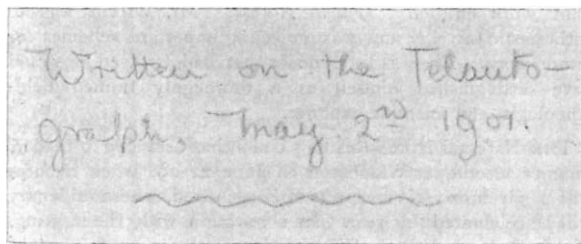 Written on the Telauto-
graph, May 2nd 1901.